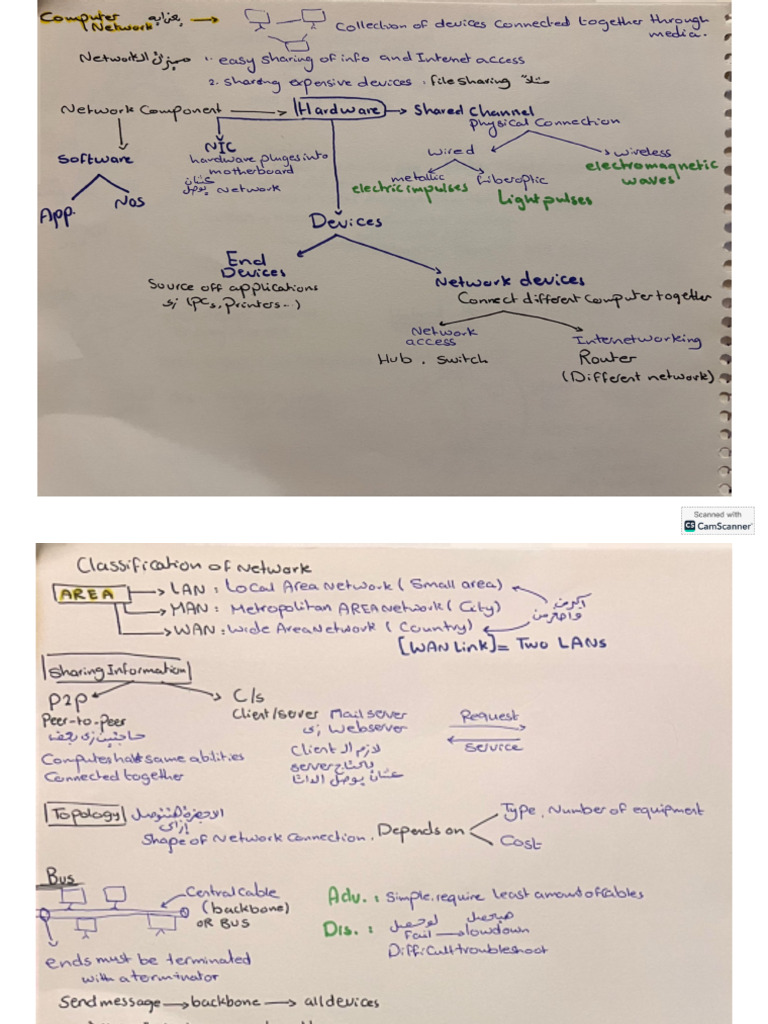 Computer Network يعنى ايه → Collection of devices connected together through media.
Network مميزات ال 1. easy sharing of info and Internet access
2. sharing expensive devices, file sharing مثلاً
Network Component → Hardware → Shared Channel
Physical Connection
Software
App. NOS
NIC
hardware pluges into
motherboard
عشان يوصل Network
wired
wireless
metallic
electric impulses
fiberoptic
Light pulses
electromagnetic
waves
Devices
End
Devices
Source off applications
زى (PCs, Printers..)
Network devices
Connect different Computer together
Network
access
Hub . switch
Internetworking
Router
(Different network)
Scanned with
CS CamScanner
Classification of Network
AREA → LAN : Local Area Network (Small area)
→ MAN : Metropolitan AREA Network (City)
→ WAN : Wide Area Network (Country)
اكتر من واحدة من
[WAN Link] = Two LANs
Sharing Information
P2P
Peer-to-Peer
حاجتين زى بعض
Computes has same abilities
Connected together
C/S
Client/Server Mail server
زى Webserver
لازم ال Client
يحتاج server
عشان يوصل الداتا
Request
Service
Topology الاجهزة هتتوصل
إزاى
Shape of Network Connection. Depends on
Type, Number of equipment
Cost
Bus
Central cable
(backbone)
OR BUS
ends must be terminated
with a terminator
Adv. : Simple, require Least amount of Cables
Dis. : لو حصل Fail → هيحصل lowdown
Difficult troubleshoot
Send message → backbone → all devices